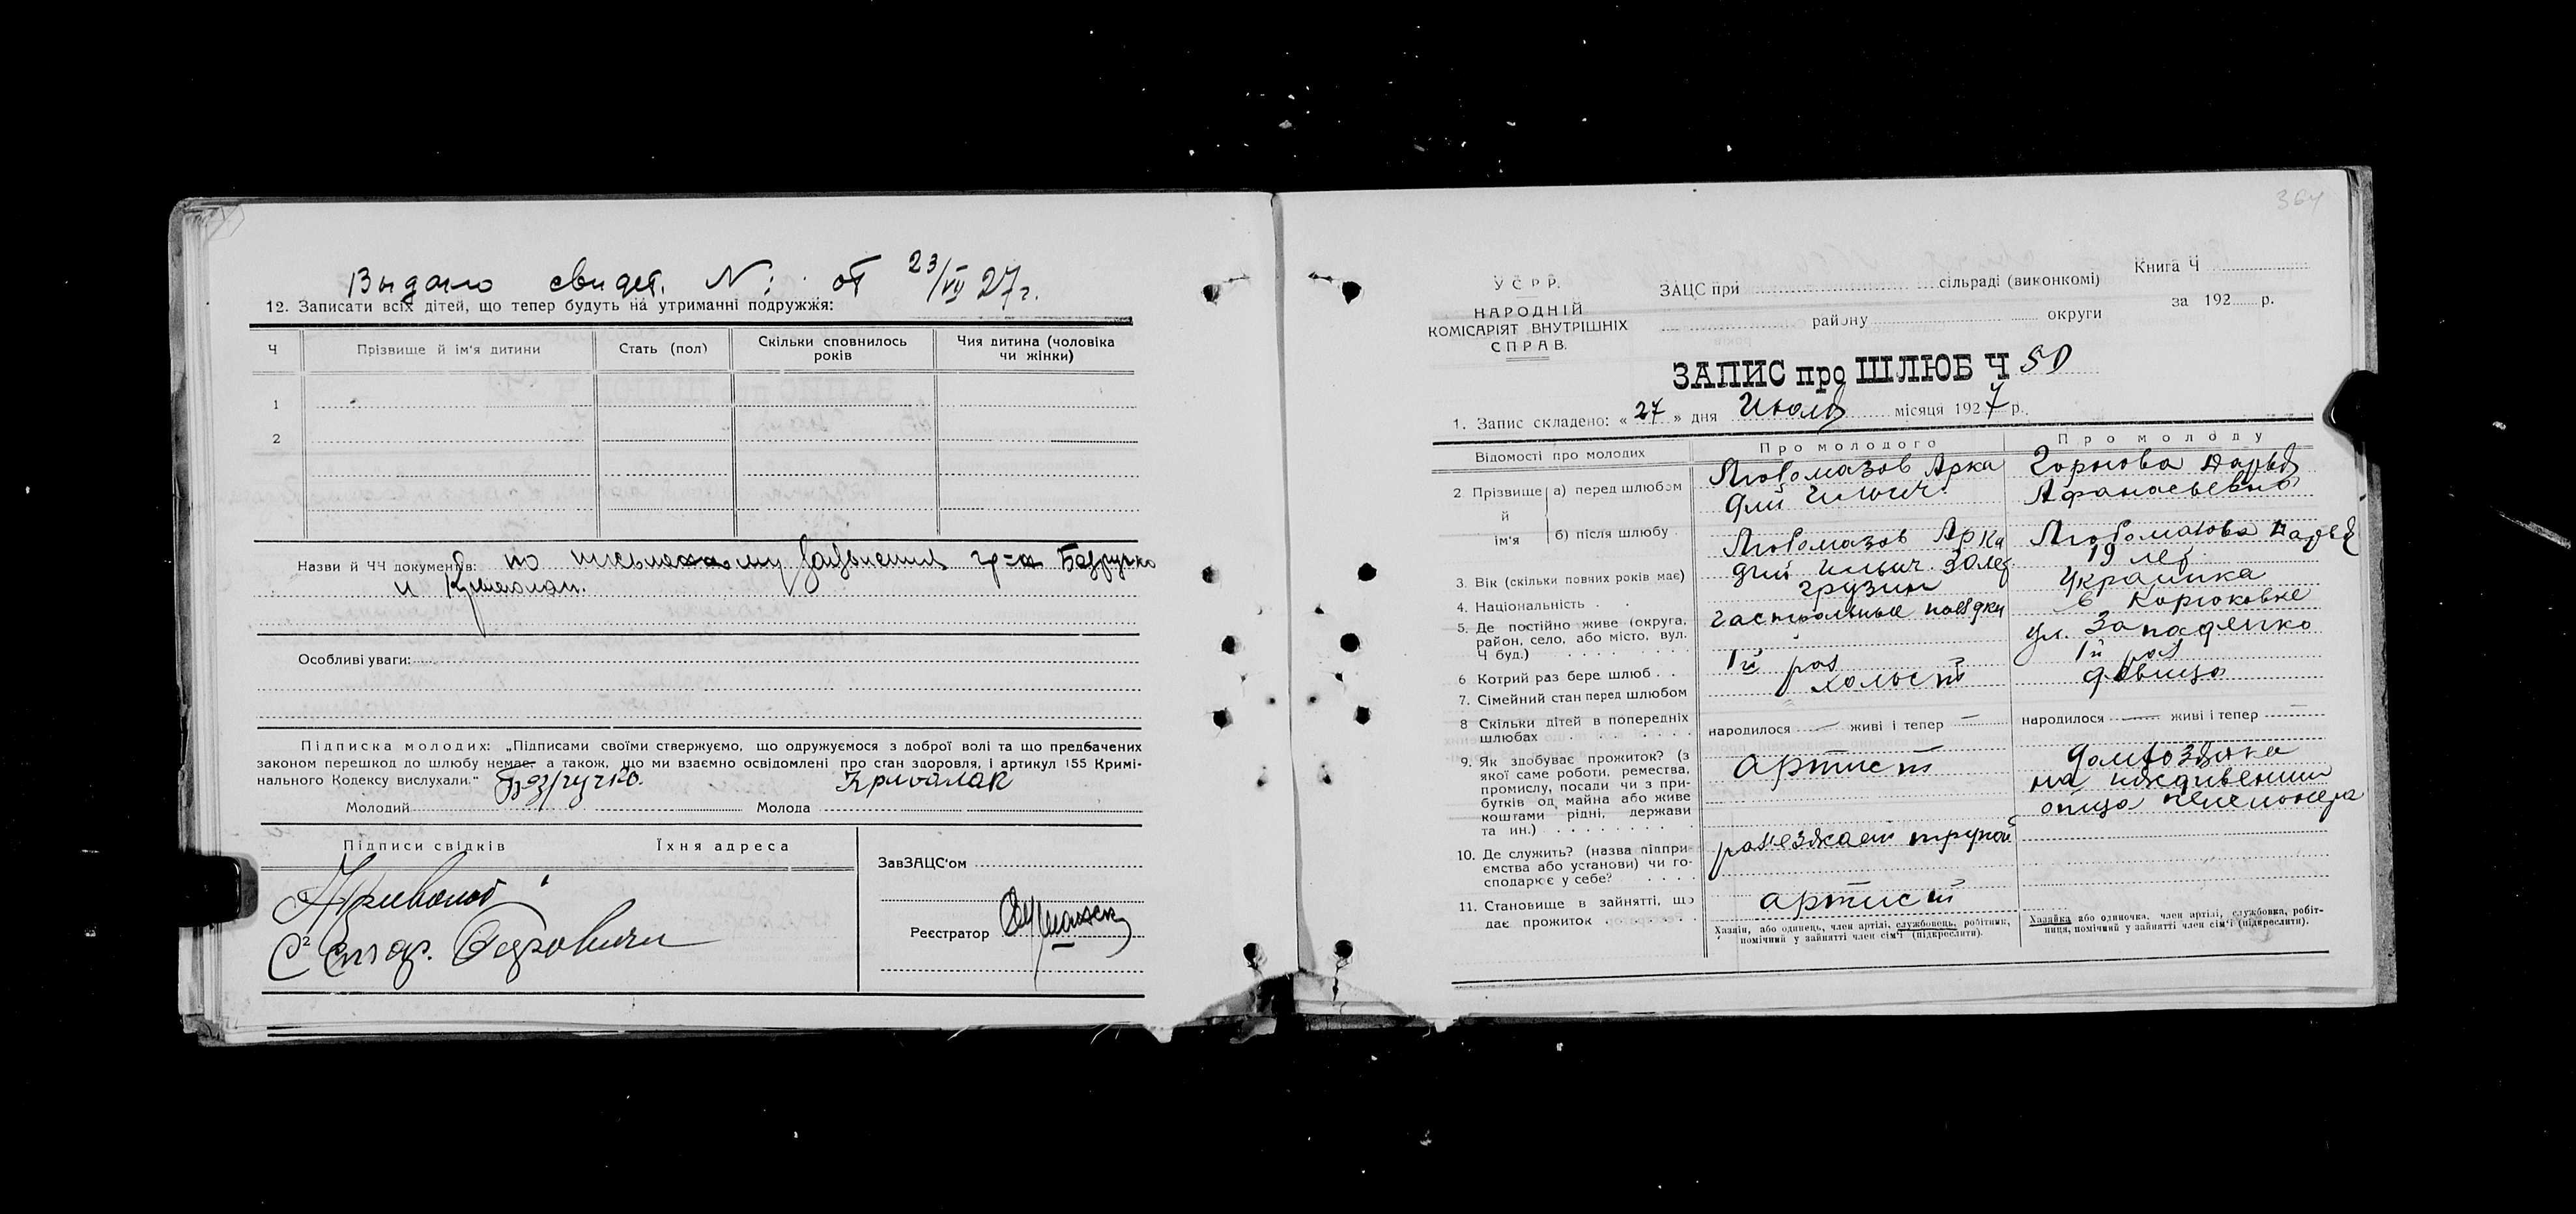 Выдано свидет. №: от 23/VII 27г.
12. Записати всіх дітей, що тепер будуть на утриманні подружжя:
Ч Прізвище й ім'я дитини Стать (пол) Скільки сповнилось років Чия дитина (чоловіка чи жінки)
1
2
Назви й ЧЧ документів: по заявления гр-н Безручко
и
Особливі уваги:
Підписка молодих: „Підписами своїми стверджуємо, що одружуємося з доброї волі та що предбачених
законом перешкод до шлюбу немає, а також, що ми взаємно освідомлені про стан здоровля, і артикул 155 Кримі-
нального Кодексу вислухали."
Молодий Безручко. Молода Кривалак
Підписи свідків Їхня адреса
ЗавЗАЦС'ом
Реєстратор
364
УСРР.
НАРОДНІЙ
КОМІСАРІЯТ ВНУТРІШНІХ
СПРАВ.
ЗАЦС при сільраді (виконкомі)
Книга Ч
району округи
за 192 р.
ЗАПИС про ШЛЮБ Ч 50
1. Запис складено: « 27 » дня Июля місяця 1927 р.
Відомості про молодих Про молодого Про молоду
2. Прізвище й ім'я
а) перед шлюбом Любомазов Аркадий Ильич. Дарья Афанасьевна
б) після шлюбу Любомазов Аркадий Ильич Любомазова Дарья
3. Вік (скільки повних років має) 30 лет 19 лет
4. Національність . . грузин Украинка
5. Де постійно живе (округа, район, село, або місто, вул. Ч буд.) гастрольные поездки в Корюковке ул. Западенко
6 Котрий раз бере шлюб . . 1й раз 1й раз
7. Сімейний стан перед шлюбом холост девица
8 Скільки дітей в попередніх шлюбах народилося — живі і тепер — народилося — живі і тепер —
9. Як здобуває прожиток? (з якої саме роботи, ремества, промислу, посади чи з прибутків од майна або живе коштами рідні, держави та ин.) артист домхозяйка на иждивении отца пенсионера
10. Де служить? (назва підприємства або установи) чи господарює у себе? раз'езжает трупой
11. Становище в зайнятті, що дає прожиток артист
Хазяїн, або одинець, член артілі, службовець, робітник,
помічний у зайнятті член сім'ї (підкреслити).
Хазяйка або одиночка, член артілі, службовка, робіт-
ниця, помічний у зайнятті член сім'ї (підкреслити).